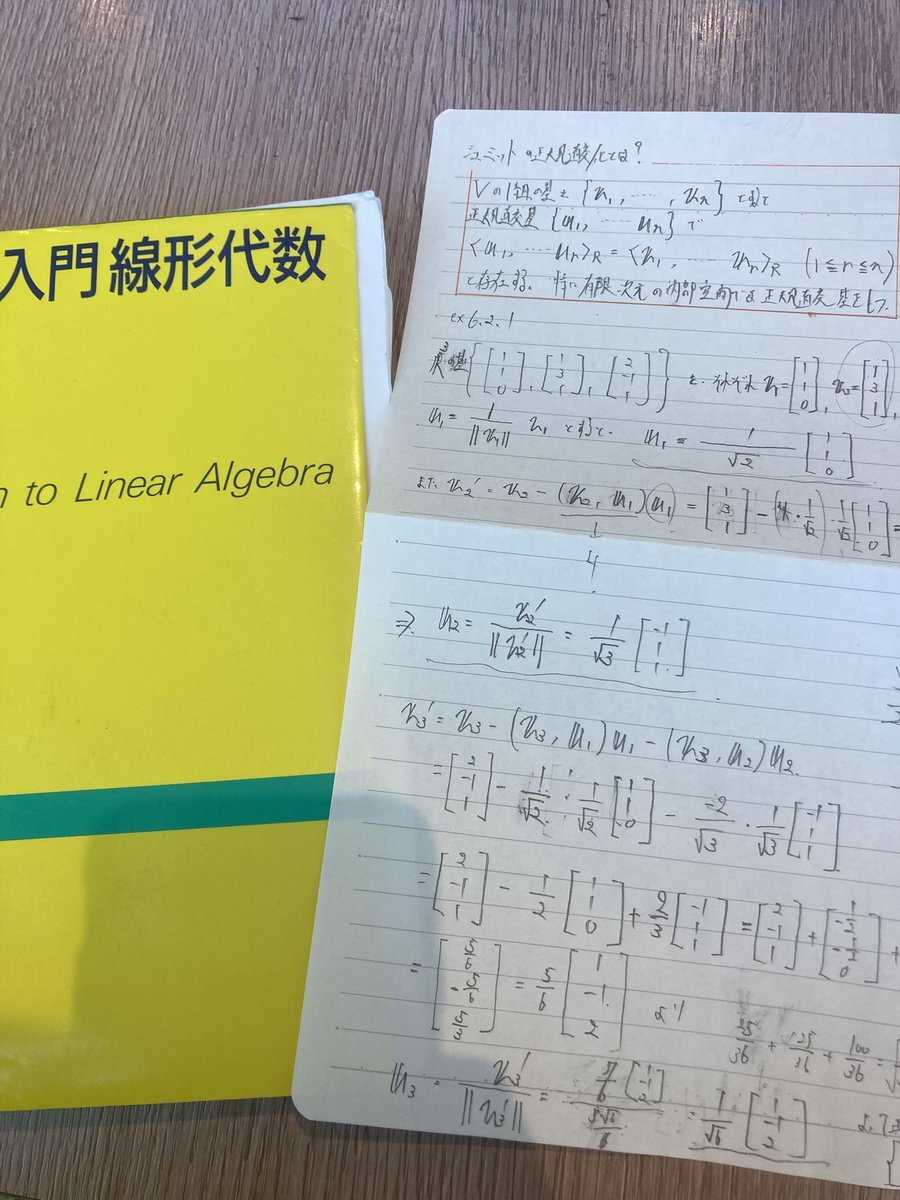 入門 線形代数
n to Linear Algebra
シュミットの正規直交化とは?
Vの1組の基を {v₁, ……, vₙ} とすると
正規直交基 {u₁, …… uₙ} で
⟨u₁, …… uᵣ⟩R = ⟨v₁, …… vᵣ⟩R (1≦r≦n)
と存在する. 特に有限次元の内部空間では正規直交基をもつ.
ex 6.2.1
の基 { [1 1 0], [1 3 1], [2 -1 1] } を、それぞれ v₁ = [1 1 0], v₂ = [1 3 1],
u₁ = 1/||v₁|| v₁ とすると、 u₁ = 1/√2 [1 1 0]
また v₂' = v₂ - (v₂, u₁)u₁ = [1 3 1] - (4・1/√2)・1/√2 [1 1 0] =
↓
4
⇒ u₂ = v₂'/||v₂'|| = 1/√3 [-1 1 1]
v₃' = v₃ - (v₃, u₁)u₁ - (v₃, u₂)u₂.
= [2 -1 1] - 1/√2・1/√2 [1 1 0] - -2/√3・1/√3 [-1 1 1]
= [2 -1 1] - 1/2 [1 1 0] + 2/3 [-1 1 1] = [2 -1 1] + [-1/2 -1/2 0] +
= [5/6 -5/6 5/3] = 5/6 [1 -1 2] より
25/36 + 25/36 + 100/36 =
u₃ = v₃'/||v₃'|| = 5/6 [1 -1 2] / 5√6/6 = 1/√6 [1 -1 2]